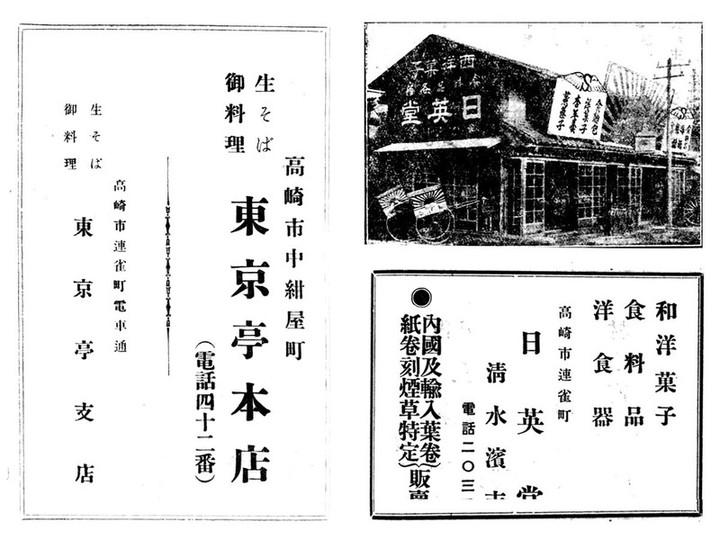 生そば
御料理
高崎市中紺屋町
東京亭本店
(電話四十二番)
生そば
御料理
高崎市連雀町電車通
東京亭支店
西洋菓子
日英堂
和洋菓子
食料品
洋食器
高崎市連雀町
日英堂
清水濱
電話二〇三
◉內國及輸入葉卷
紙卷刻煙草特定
販賣